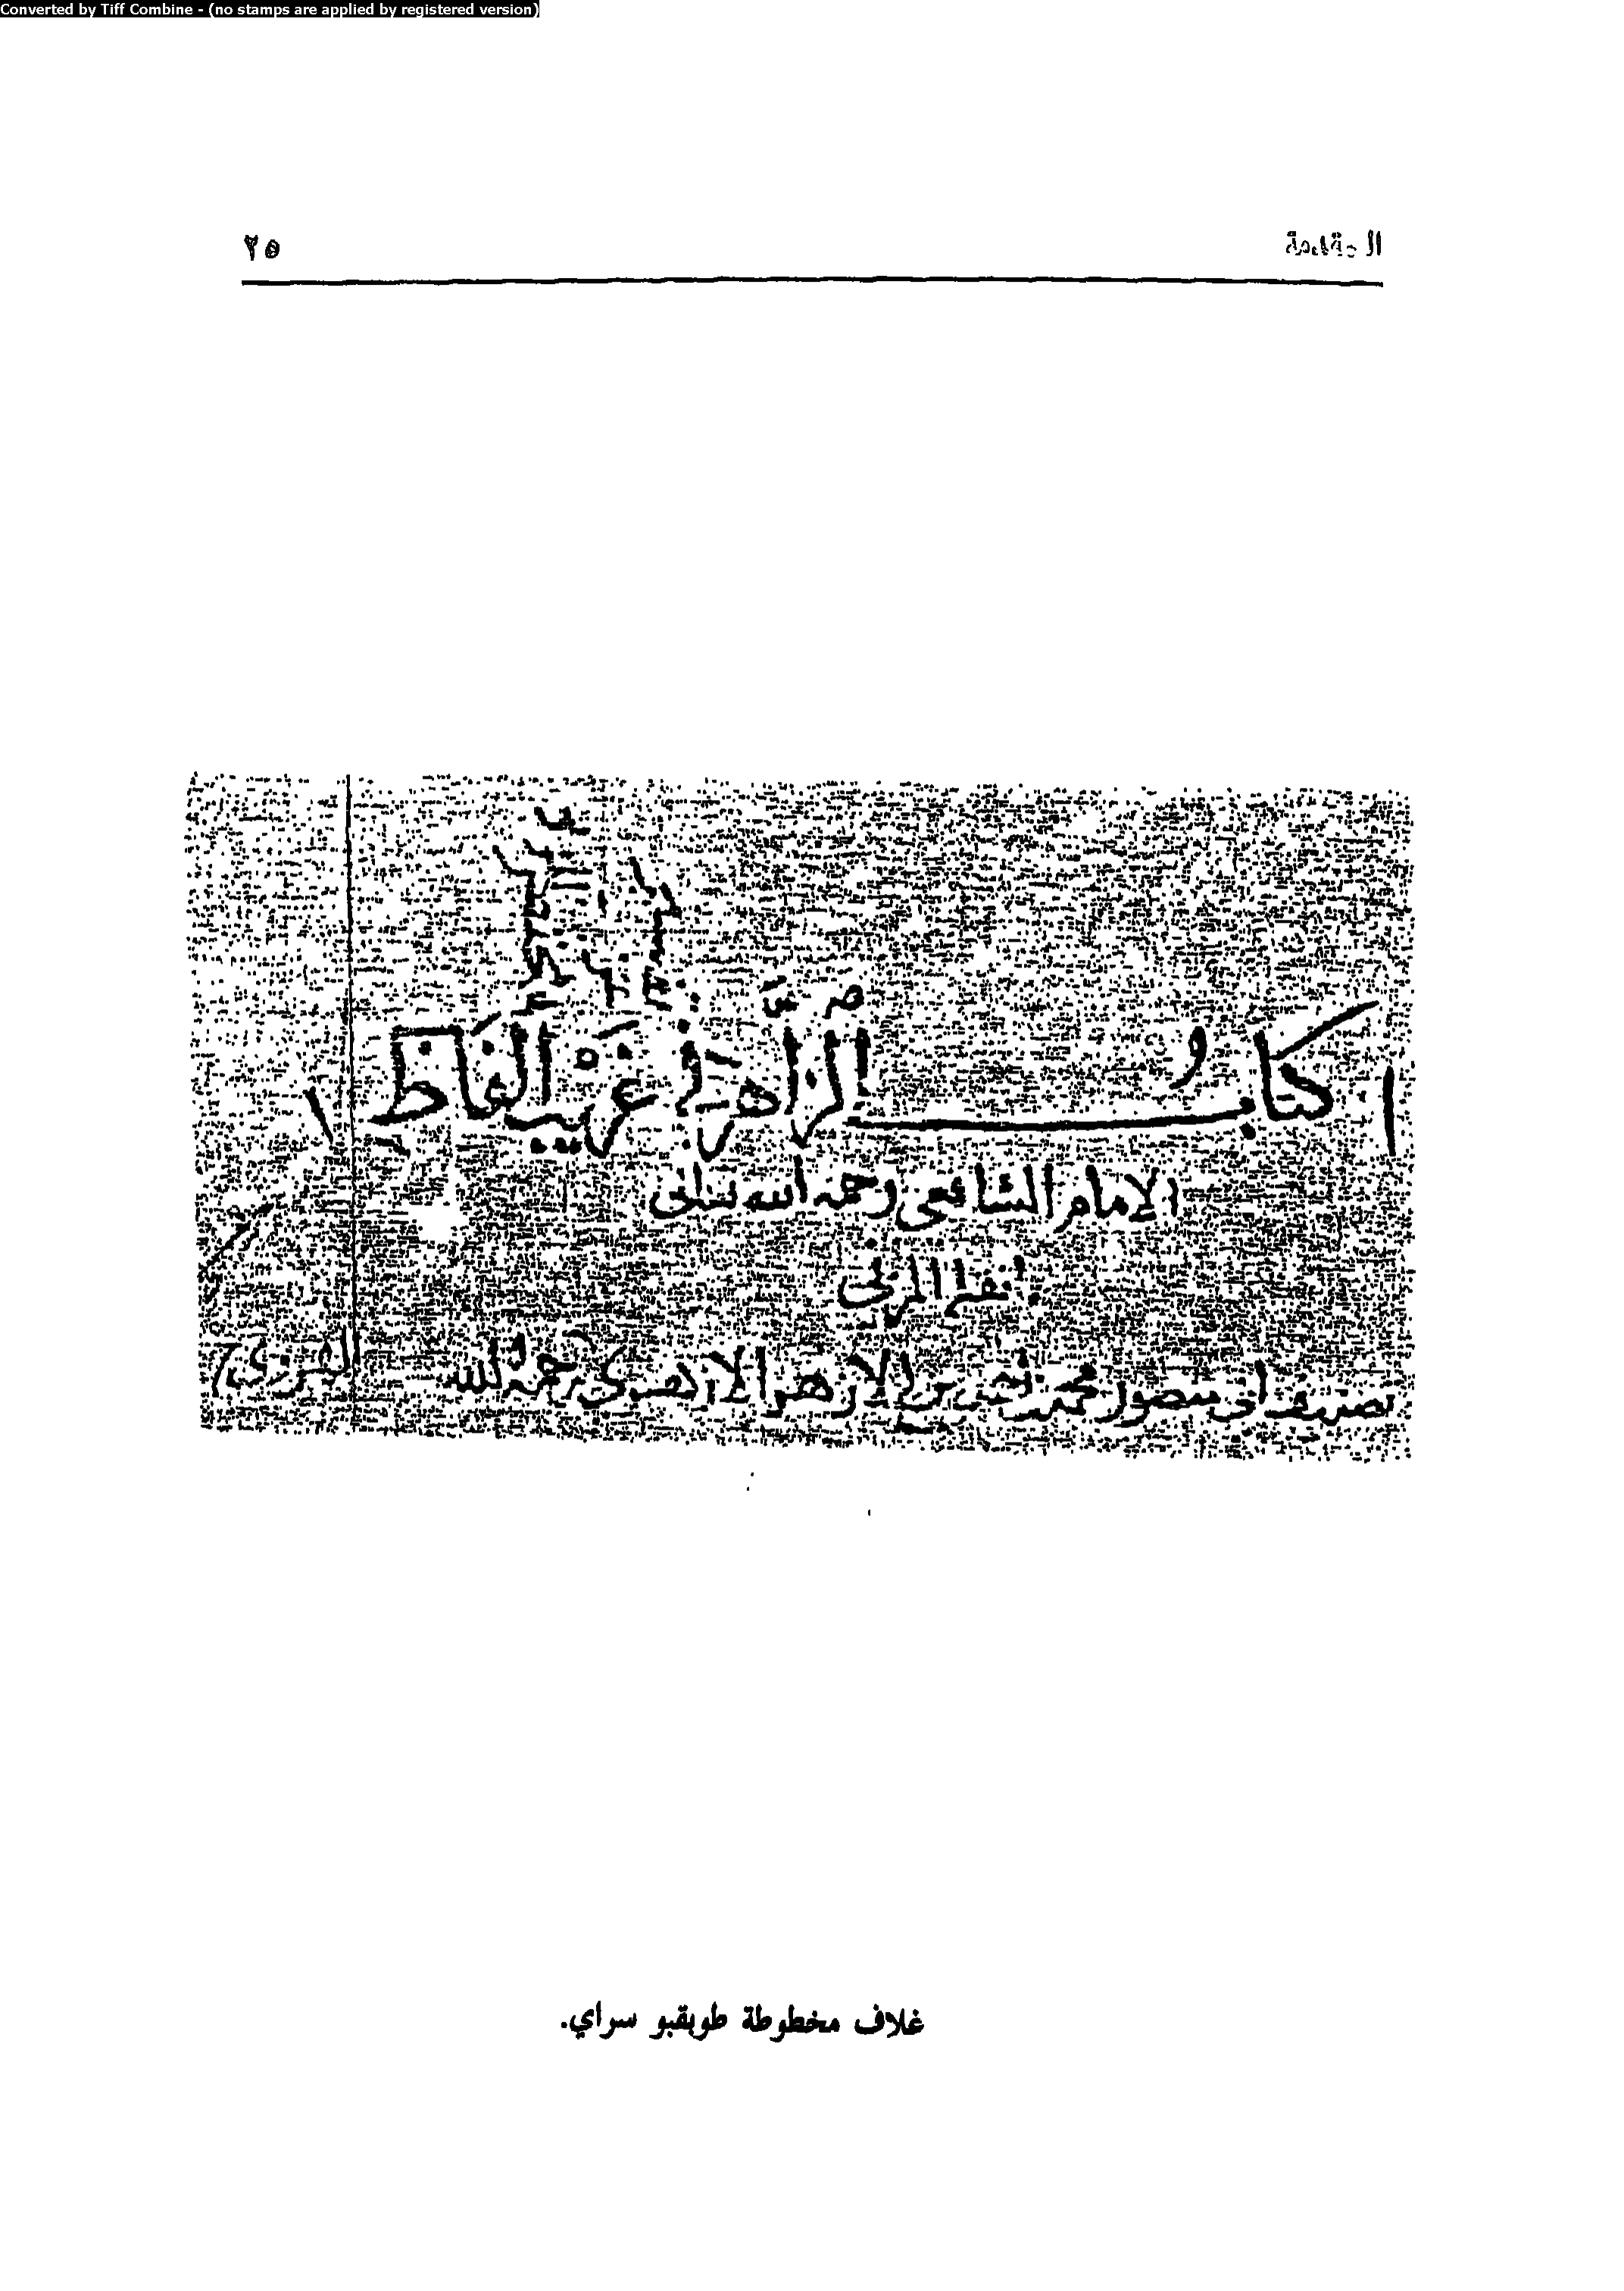 Converted by Tiff Combine - (no stamps are applied by registered version)
المقدمة ٢٥
كتاب الزاهر في غريب الفاظ
الامام الشافعي رحمه الله تعالى
المزني
تصنيف ابي منصور محمد بن احمد بن الازهر الازهري رحمه الله
غلاف مخطوطة طوبقبو سراي.